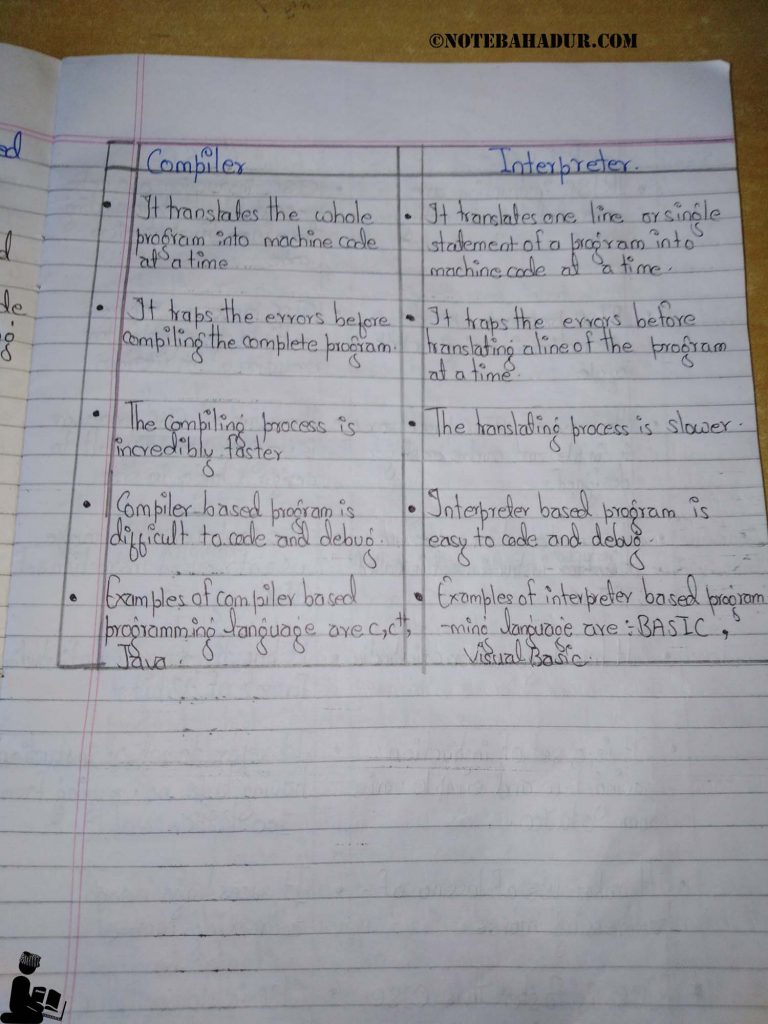 ©NOTEBAHADUR.COM
Compiler
Interpreter.
• It translates the whole
program into machine code
at a time
• It translates one line or single
statement of a program into
machine code at a time.
• It traps the errors before
compiling the complete program.
• It traps the errors before
translating a line of the program
at a time.
• The compiling process is
incredibly faster
• The translating process is slower.
• Compiler-based program is
difficult to code and debug.
• Interpreter based program is
easy to code and debug.
• Examples of compiler based
programming language are c, c++,
Java.
• Examples of interpreter based program
-ming language are : BASIC,
Visual Basic.